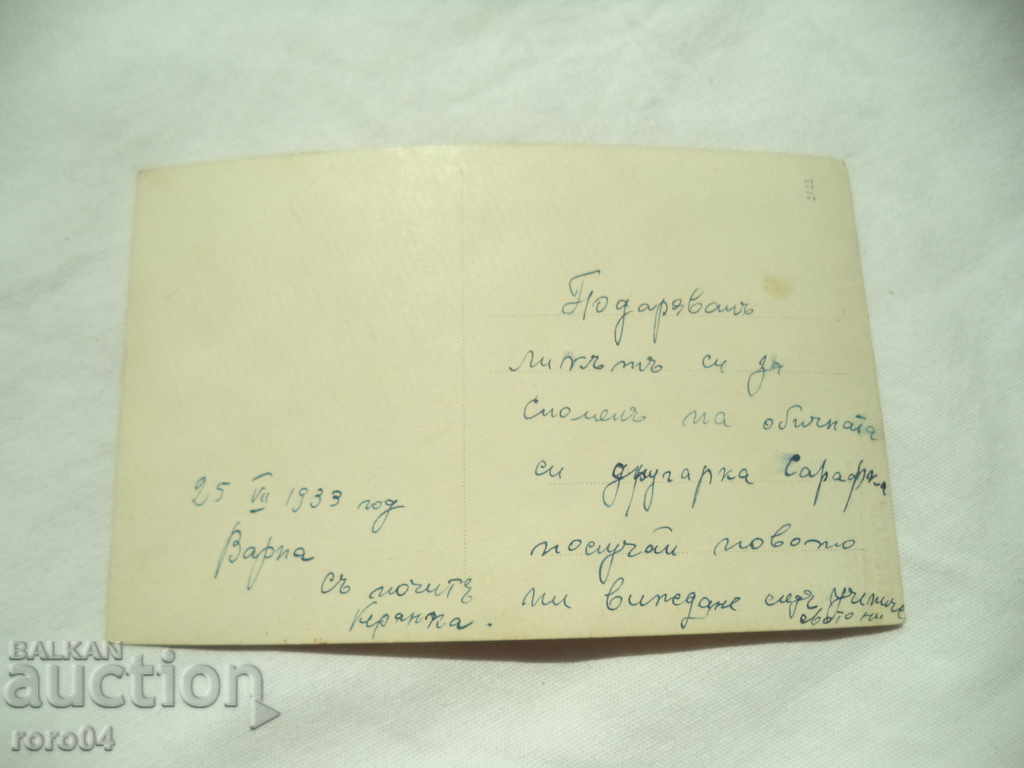 Подарявамъ
ликътъ си за
споменъ на обичната
си другарка Сарафка
послучай новото
ни виждане следъ ученичеството ни
25 VII 1933 год
Варна
съ почитъ
BALKAN
auction
roro04